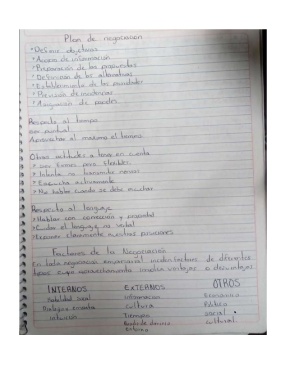 Plan de negociación
* Definir objetivos
* Acopio de información
* Preparación de las propuestas
* Definición de las alternativas
* Establecimiento de las prioridades
* Previsión de
* Asignación de papeles
Respecto al tiempo
ser puntual
Aprovechar al máximo el tiempo
Otras actitudes a tener en cuenta
* Ser firmes pero flexibles
* Intenta no transmitir
* Escucha activamente
* No hablar cuando se debe escuchar
Respecto al lenguaje
* Hablar con corrección y
* Cuidar el lenguaje no verbal
* Exponer claramente nuestras posiciones
Factores de la Negociación
En toda negociación empresarial inciden factores de diferentes
tipos cuyo aprovechamiento implica ventajas o desventajas
INTERNOS EXTERNOS OTROS
Habilidad Información Económico
Inteligencia Cultura Política
Intuición Tiempo social
Puntos de
Entorno cultural